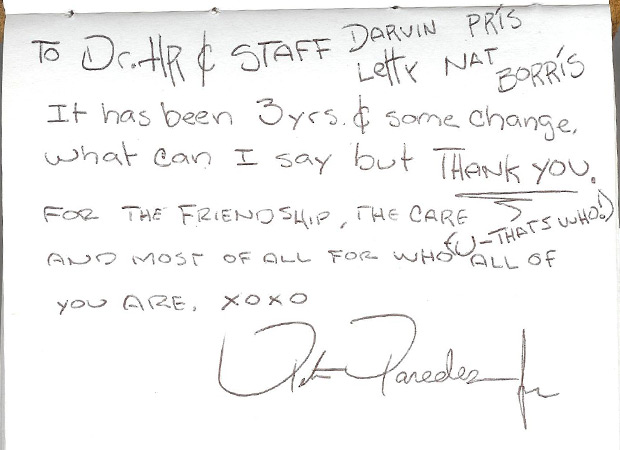 To Dr. HR & STAFF DARVIN PRÍS
Letty NAT BORRÍS
It has been 3 yrs. & some change,
what can I say but THANK YOU.
FOR THE FRIENDSHIP, THE CARE
(U-THATS WHO!)
AND MOST OF ALL FOR WHO ALL OF
YOU ARE. XOXO
Paredes Jr